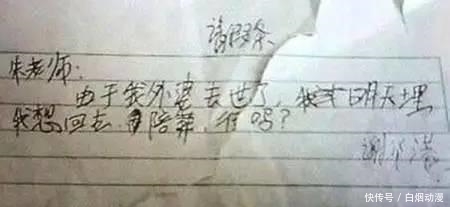 请假条
朱老师:
由于我外婆去世了,我 明天埋
我想回去 陪葬,行吗?
谢
快传号/白烟动漫